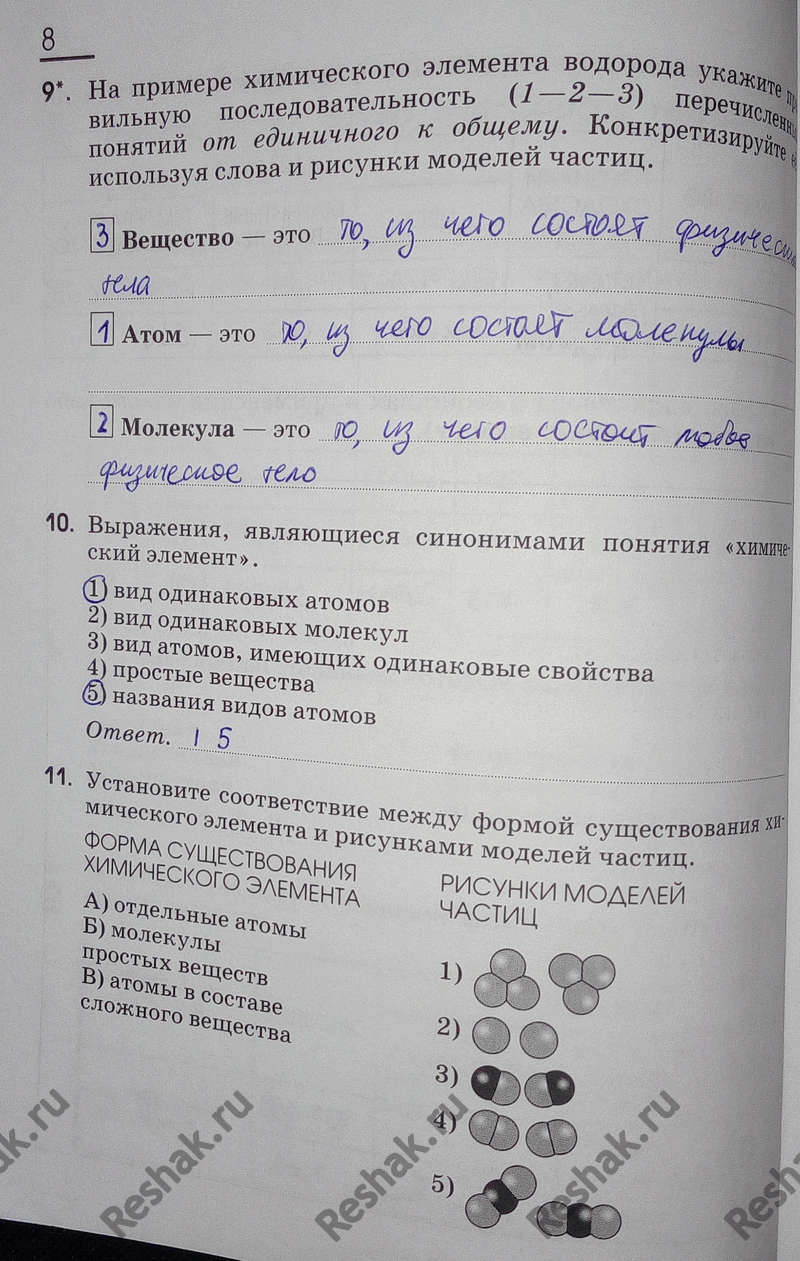 8
9*. На примере химического элемента водорода укажите пра
вильную последовательность (1—2—3) перечисленных
понятий от единичного к общему. Конкретизируйте
используя слова и рисунки моделей частиц.
3 Вещество — это то, из чего состоят физические
тела
1 Атом — это то, из чего состоят молекулы
2 Молекула — это то, из чего состоит любое
физическое тело
10. Выражения, являющиеся синонимами понятия «химиче-
ский элемент».
1) вид одинаковых атомов
2) вид одинаковых молекул
3) вид атомов, имеющих одинаковые свойства
4) простые вещества
5) названия видов атомов
Ответ. 1 5
11. Установите соответствие между формой существования хи-
мического элемента и рисунками моделей частиц.
ФОРМА СУЩЕСТВОВАНИЯ
ХИМИЧЕСКОГО ЭЛЕМЕНТА
А) отдельные атомы
Б) молекулы
простых веществ
В) атомы в составе
сложного вещества
РИСУНКИ МОДЕЛЕЙ
ЧАСТИЦ
1)
2)
3)
4)
5)
Reshak.ru
Reshak.ru
Reshak.ru